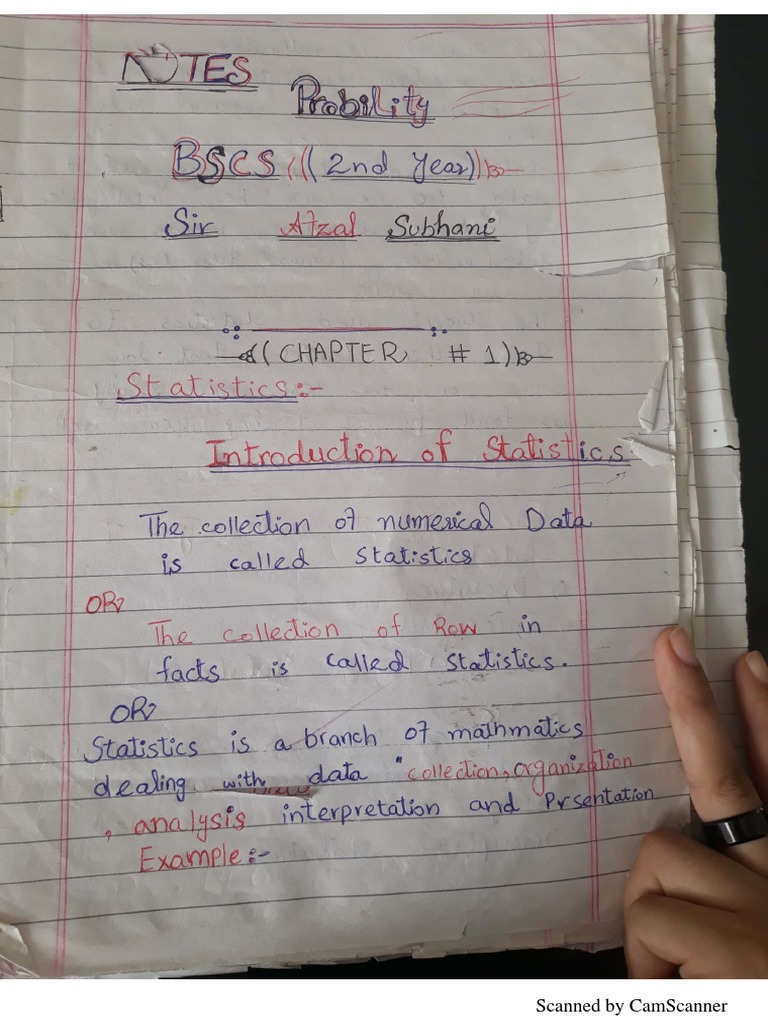 NOTES
Probility
BSCS ((2nd Year))
Sir Afzal Subhani
(CHAPTER # 1)
Statistics:-
Introduction of Statistics
The collection of numerical Data
is called Statistics
OR
The collection of Row in
facts is called Statistics.
OR
Statistics is a branch of mathmatics
dealing with data "collection, organization
, analysis interpretation and Prsentation
Example:-
Scanned by CamScanner